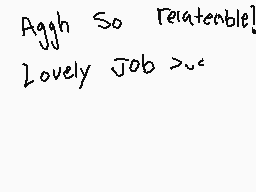 Aggh so relatenble!
Lovely Job >u<